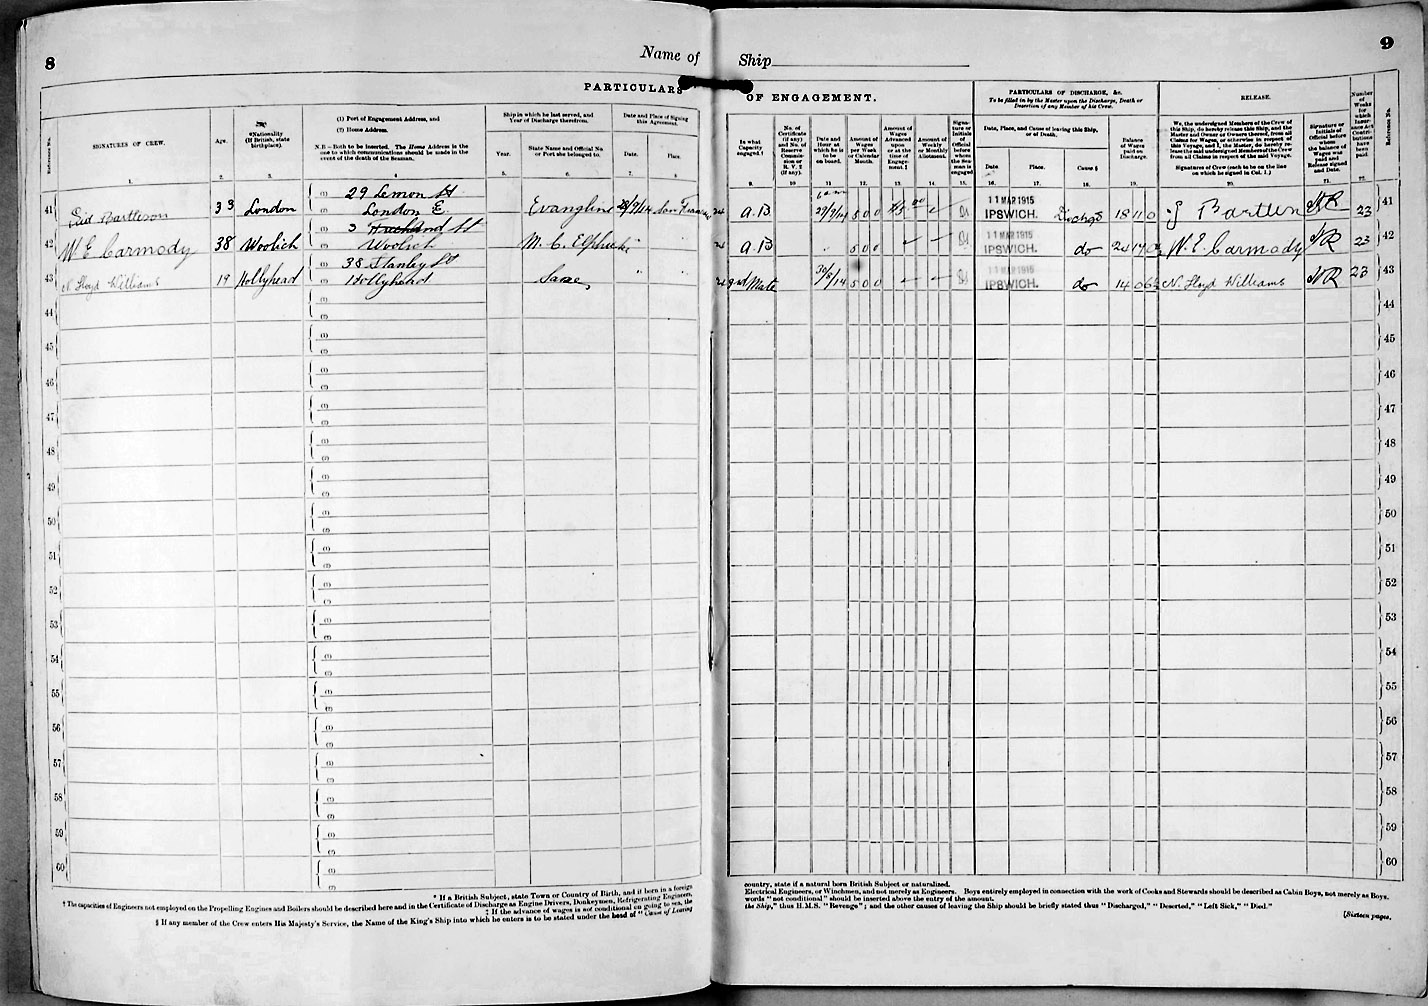 8
Name of Ship
9
PARTICULARS OF ENGAGEMENT.
PARTICULARS OF DISCHARGE, &c.
To be filled in by the Master upon the Discharge, Death or
Desertion of any Member of his Crew.
RELEASE.
Reference No.
SIGNATURES OF CREW.
1.
Age.
2.
*Nationality
(If British, state
birthplace).
3.
(1) Port of Engagement Address, and
(2) Home Address.
N.B.—Both to be inserted. The Home Address is the
one to which communications should be made in the
event of the death of the Seaman.
4
Ship in which he last served, and
Year of Discharge therefrom.
Year.
5.
State Name and Official No
or Port she belonged to.
6.
Date and Place of Signing
this Agreement.
Date.
7.
Place.
8
In what
Capacity
engaged.†
9.
No. of
Certificate
(if any)
and No. of
Reserve
Commis-
sion or
R. V. 2
(if any).
10
Date and
Hour at
which he is
to be
on board.
11
Amount of
Wages
per Week
or Calendar
Month.
12.
Amount of
Wages
Advanced
upon
or at the
time of
Engage-
ment.‡
13.
Amount of
Weekly
or Monthly
Allotment.
14.
Signa-
ture or
Initials
of
Official
before
whom the
Seaman is
engaged
15.
Date, Place, and Cause of leaving this Ship,
or of Death.
Date
16.
Place.
17.
Cause §
18.
Balance
of Wages
paid on
Discharge.
19.
We, the undersigned Members of the Crew of
this Ship, do hereby release this Ship, and the
Master and Owner or Owners thereof, from all
Claims for Wages, or otherwise in respect of
this Voyage, and I, the Master, do hereby re-
lease the said undersigned Members of the Crew
from all Claims in respect of the said Voyage.
Signatures of Crew (each to be on the line
on which he signed in Col. 1.)
20.
Signature or
Initials of
Official before
whom
the balance of
Wages was
paid and
Release signed
and Date.
21.
Number
of
Weeks
for
which
Insur-
ance Act
Contri-
butions
have
been
paid.
22.
Reference No.
41 Sid Bartleson 33 London (1) 29 Lemon St (2) London E Evangline 29/9/14 San Francisco A.B 6 am 29/9/14 5 0 0 11 MAR 1915 IPSWICH. Dischgd 18 11 0 Bartleson 23 41
42 W. E Carmody 38 Woolich (1) 3 St (2) Woolich M. C. Elphicke " " A.B " 5 0 0 11 MAR 1915 IPSWICH. do W. E. Carmody 23 42
43 N. Floyd Williams 19 Hollyhead (1) 38 Stanley St (2) Hollyhead Same " " 3rd Mate 30/9/14 5 0 0 11 MAR 1915 IPSWICH. do 14 0 6 N. Floyd Williams 23 43
44 (1) (2) 44
45 (1) (2) 45
46 (1) (2) 46
47 (1) (2) 47
48 (1) (2) 48
49 (1) (2) 49
50 (1) (2) 50
51 (1) (2) 51
52 (1) (2) 52
53 (1) (2) 53
54 (1) (2) 54
55 (1) (2) 55
56 (1) (2) 56
57 (1) (2) 57
58 (1) (2) 58
59 (1) (2) 59
60 (1) (2) 60
* If a British Subject, state Town or Country of Birth, and if born in a foreign country, state if a natural born British Subject or naturalized.
† The capacities of Engineers not employed on the Propelling Engines and Boilers should be described here and in the Certificate of Discharge as Engine Drivers, Donkeymen, Refrigerating Engineers, Electrical Engineers, or Winchmen, and not merely as Engineers. Boys entirely employed in connection with the work of Cooks and Stewards should be described as Cabin Boys, not merely as Boys.
‡ If the advance of wages is not conditional on going to sea, the words "not conditional" should be inserted above the entry of the amount.
§ If any member of the Crew enters His Majesty's Service, the Name of the King's Ship into which he enters is to be stated under the head of "Cause of Leaving the Ship," thus H.M.S. "Revenge"; and the other causes of leaving the Ship should be briefly stated thus "Discharged," "Deserted," "Left Sick," "Died."
[Sixteen pages.